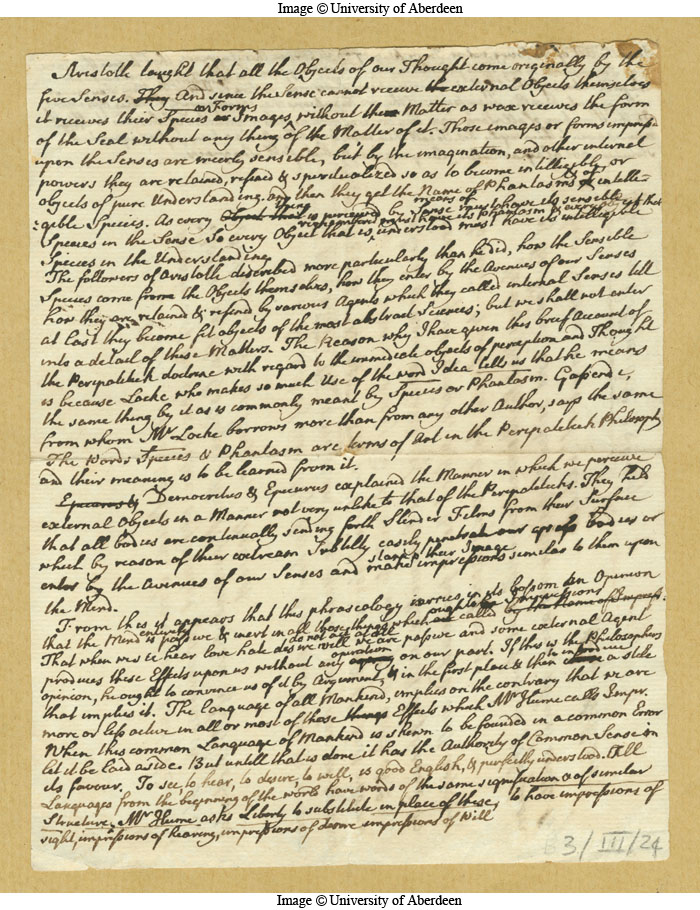 Image © University of Aberdeen
Aristotle taught that all the Objects of our Thought come originally by the
five Senses. They And since the Sense cannot receive the external Objects themselves
it receives their Species or Images without the Matter as wax receives the form
or Forms
of the Seal without any thing of the Matter of it. Those images or forms impress'd
upon the Senses are meerly sensible, but by the imagination, and other internal
powers they are retained, refined & spiritualized so as to become intelligible, or
objects of pure Understanding. and then they get the Name of Phantasms & of intelli-
-gible Species. As every Object that is perceived by Sense must have its sensible
means of
Species in the Sense So every Object that is understood must have its intelligible
Species in the Understanding
The followers of Aristotle described more particularly than he did, how the Sensible
Species come from the Objects themselves, how they enter by the Avenues of our Senses
how they are retained & refined by various Agents which they called internal Senses till
at last they become fit objects of the most abstract Sciences; but we shall not enter
into a detail of these Matters. The Reason why I have given this brief Account of
the Peripatetick doctrine with regard to the immediate objects of perception and Thought
is because Locke who makes so much Use of the word Idea tells us that he means
the same thing by it as is commonly meant by Species or Phantasm. Gassende,
from whom Mr Locke borrows more than from any other Author, says the same
The Words Species & Phantasm are terms of Art in the Peripatetick Philosophy
and their meaning is to be learned from it.
Epicurus & Democritus & Epicurus explained the Manner in which we perceive
external Objects in a Manner not very unlike to that of the Peripateticks. They held
that all bodies are continually sending forth Slender Films from their Surface
which by reason of their extream Subtilty easily penetrate our bodies or
enter by the Avenues of our Senses and make impressions similar to them upon
stamp their Image
the Mind.
From this it appears that this phraseology carries in its bosom an Opinion
that the Mind is passive & inert in all those things which are called by the Name of Impress.
entirely
ought to
Impressions
That when we see hear love hate desire will we are passive and some external Agent
do not act at all
produces these Effects upon us without any on our part. If this is the Philosophers
operation
opinion, he ought to convince us of it by Argument, & in the first place & then a stile
to introduce
that implies it. The language of all Mankind, implies on the contrary that we are
more or less active in all or most of those things Effects which Mr Hume calls Impr.
When this common Language of Mankind is shewn to be founded in a common Error
let it be laid aside. But untill that is done it has the Authority of Common Sense in
its favour. To see, to hear, to desire, to will, is good English, & perfectly understood. All
Languages from the beginning of the world have words of the same signification & of similar
Structure. Mr Hume asks Liberty to substitute in place of these, to have impressions of
sight, impressions of hearing, impressions of desire impressions of Will
3/III/24
Image © University of Aberdeen